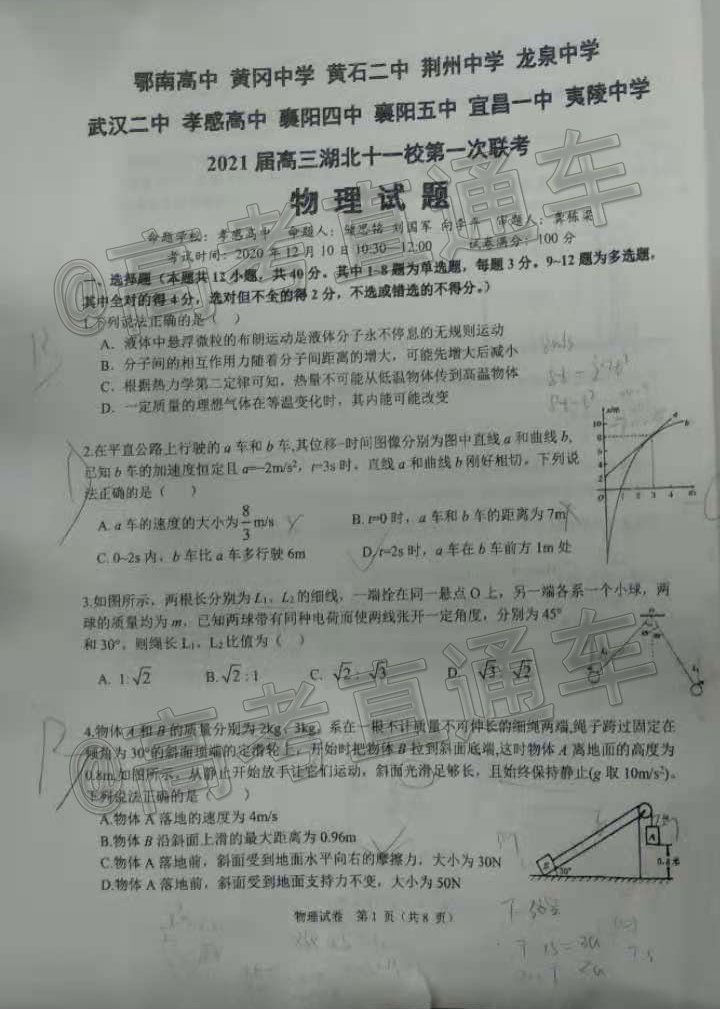 鄂南高中 黄冈中学 黄石二中 荆州中学 龙泉中学
武汉二中 孝感高中 襄阳四中 襄阳五中 宜昌一中 夷陵中学
2021 届高三湖北十一校第一次联考
物理试题
命题学校：孝感高中 命题人： 刘国军 审题人：
考试时间：2020 年 12 月 10 日 10:30—12:00 试卷满分：100 分
一、选择题（本题共 12 小题，共 40 分。其中 1~8 题为单选题，每题 3 分。9~12 题为多选题，
其中全对的得 4 分，选对但不全的得 2 分，不选或错选的不得分。）
1.下列说法正确的是（ ）
A．液体中悬浮微粒的布朗运动是液体分子永不停息的无规则运动
B．分子间的相互作用力随着分子间距离的增大，可能先增大后减小
C．根据热力学第二定律可知，热量不可能从低温物体传到高温物体
D．一定质量的理想气体在等温变化时，其内能可能改变
2.在平直公路上行驶的 a 车和 b 车,其位移-时间图像分别为图中直线 a 和曲线 b,
已知 b 车的加速度恒定且 a=-2m/s², t=3s 时，直线 a 和曲线 b 刚好相切。下列说
法正确的是（ ）
A. a 车的速度的大小为 8/3 m/s B. t=0 时，a 车和 b 车的距离为 7m
C. 0~2s 内，b 车比 a 车多行驶 6m D. t=2s 时，a 车在 b 车前方 1m 处
x/m
10
8
6
4
2
0 1 2 3 4
a
b
3.如图所示，两根长分别为 L₁、L₂的细线，一端拴在同一悬点 O 上，另一端各系一个小球，两
球的质量均为 m，已知两球带有同种电荷而使两线张开一定角度，分别为 45°
和 30°，则绳长 L₁、L₂比值为（ ）
A. 1:√2 B. √2 : 1 C. √2 : √3 D. √3 : √2
4.物体 A 和 B 的质量分别为 2kg、3kg，系在一根不计质量不可伸长的细绳两端,绳子跨过固定在
倾角为 30°的斜面顶端的定滑轮上，开始时把物体 B 拉到斜面底端,这时物体 A 离地面的高度为
0.8m,如图所示，从静止开始放手让它们运动，斜面光滑足够长，且始终保持静止(g 取 10m/s²)。
下列说法正确的是（ ）
A.物体 A 落地的速度为 4m/s
B.物体 B 沿斜面上滑的最大距离为 0.96m
C.物体 A 落地前，斜面受到地面水平向右的摩擦力，大小为 30N
D.物体 A 落地前，斜面受到地面支持力不变，大小为 50N
A
B
30°
物理试卷 第 1 页（共 8 页）
@高考直通车
@高考直通车